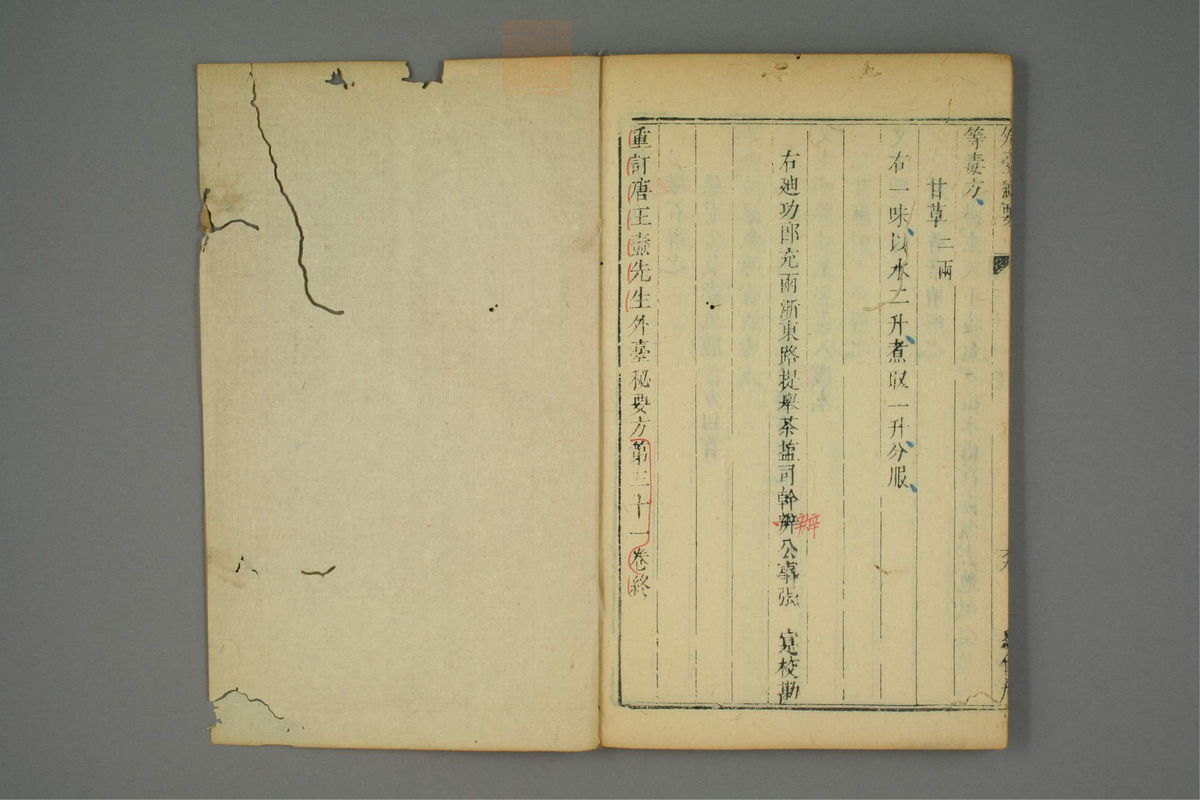 外臺秘要
等毒方
甘草二兩
右一味以水二升煮取一升分服
右迪功郎充兩浙東路提舉茶盬司幹辦公事張 寔校勘
辨
重訂唐王燾先生外臺秘要方第三十一卷終